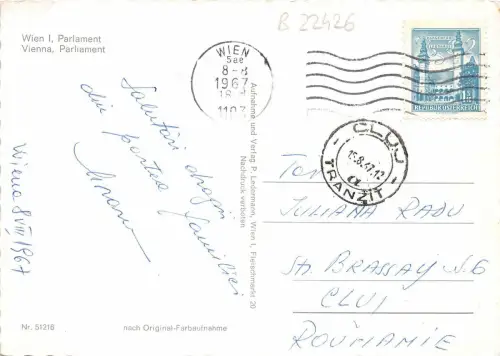 B 22426
Wien I, Parlament
Vienna, Parliament
WIEN
8-
1967
18
1103
REPUBLIK ÖSTERREICH
CLUJ
15.8.67.12
TRANZIT
Salutări dragi
din partea familiei
Wiena 8 VIII 1967
Aufnahme und Verlag P. Ledermann, Wien I, Fleischmarkt 20
Nachdruck verboten
JULIANA RADU
St. BRASSAY N.6
CLUJ
ROUMANIE
Nr. 51218
nach Original-Farbaufnahme